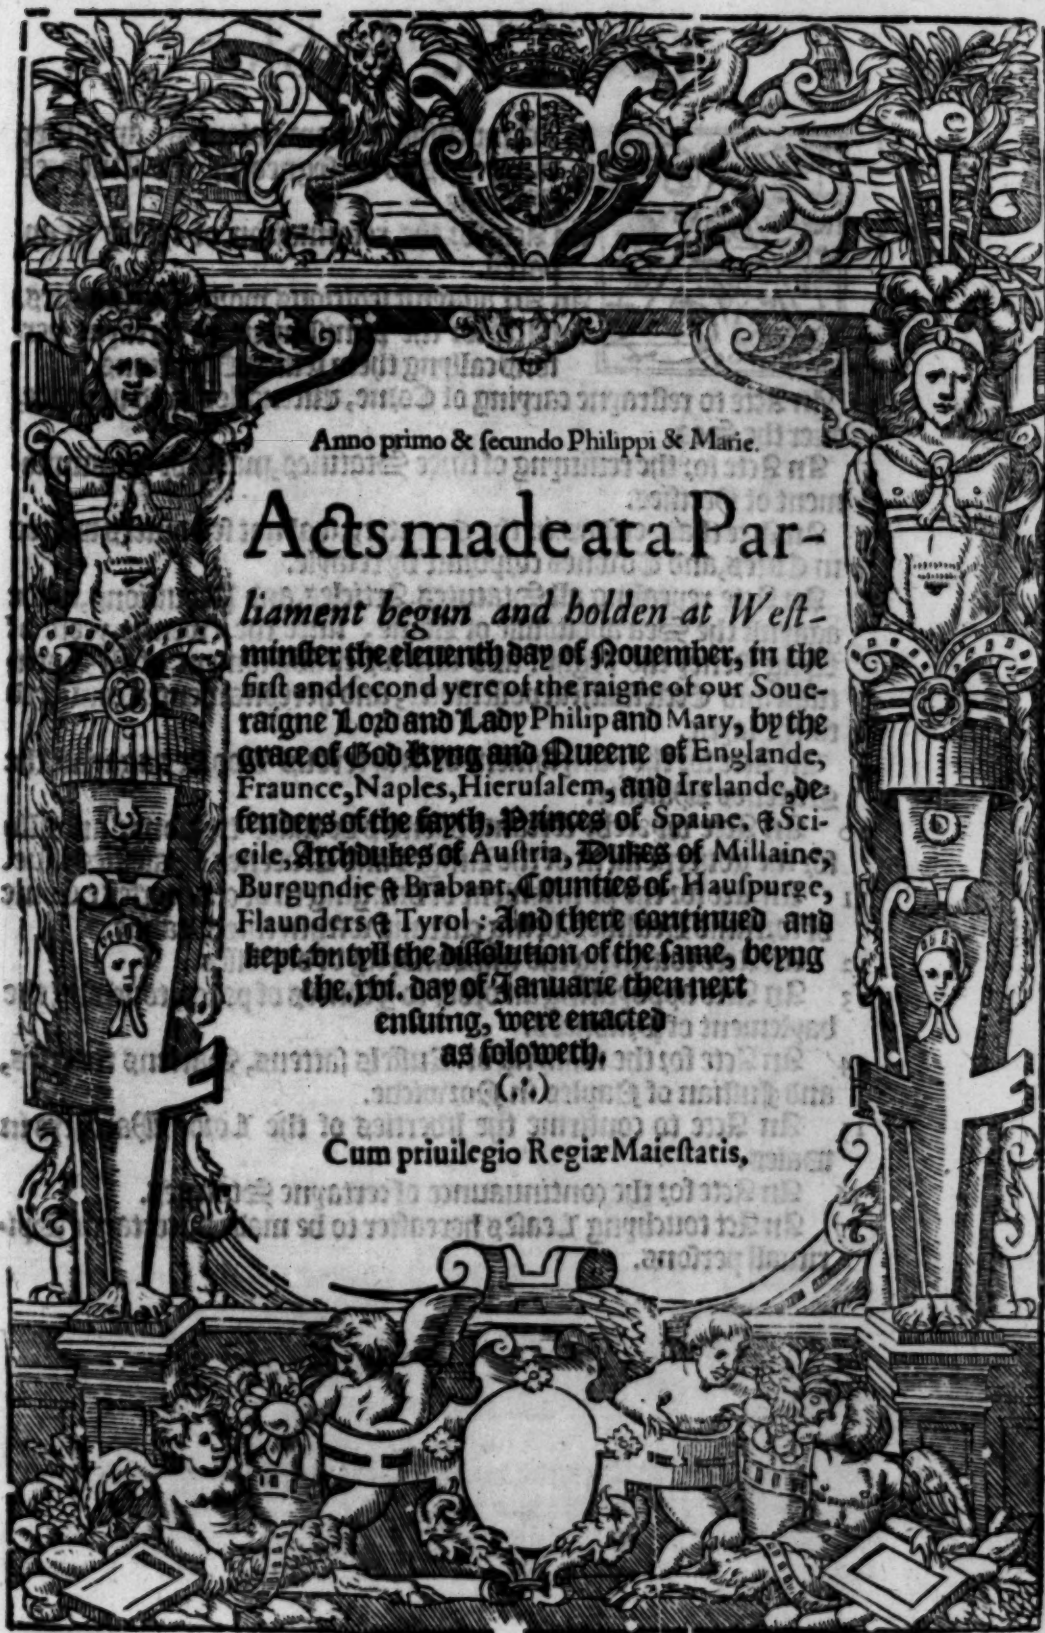 Anno primo & ſecundo Philippi & Marie.
Acts made at a Par-
liament begun and holden at Weſt-
minſter the eleuenth day of Nouember, in the
firſt and ſecond yere of the raigne of our Soue-
raigne Lord and Lady Philip and Mary, by the
grace of God Kyng and Queene of Englande,
Fraunce, Naples, Hieruſalem, and Irelande, de-
fenders of the fayth, Princes of Spaine, & Sci-
cile, Archdukes of Auſtria, Dukes of Millaine,
Burgundie & Brabant, Counties of Hauſpurge,
Flaunders & Tyrol: And there continued and
kept vntyll the diſſolution of the ſame, beyng
the .xvi. day of Januarie then next
enſuing, were enacted
as foloweth.
(.·.)
Cum priuilegio Regiæ Maieſtatis.